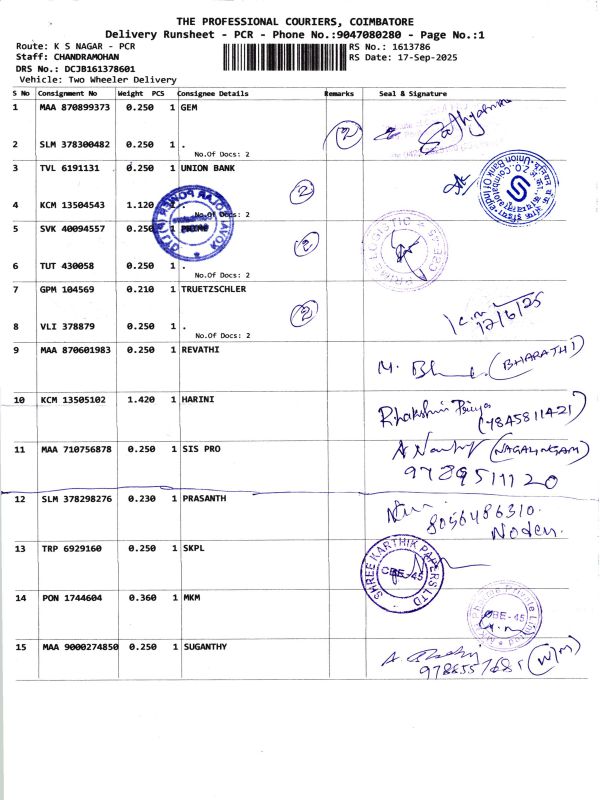 THE PROFESSIONAL COURIERS, COIMBATORE
Delivery Runsheet - PCR - Phone No.:9047080280 - Page No.:1
Route: K S NAGAR - PCR
RS No.: 1613786
Staff: CHANDRAMOHAN
RS Date: 17-Sep-2025
DRS No.: DCJB161378601
Vehicle: Two Wheeler Delivery
S No Consignment No Weight PCS Consignee Details Remarks Seal & Signature
1 MAA 870899373 0.250 1 GEM
2 SLM 378300482 0.250 1 .
No.Of Docs: 2
2
3 TVL 6191131 0.250 1 UNION BANK
4 KCM 13504543 1.120 1 .
No.Of Docs: 2
2
5 SVK 40094557 0.250 1
6 TUT 430058 0.250 1 .
No.Of Docs: 2
2
7 GPM 104569 0.210 1 TRUETZSCHLER
8 VLI 378879 0.250 1 .
No.Of Docs: 2
2
9 MAA 870601983 0.250 1 REVATHI
M. (BHARATHI)
10 KCM 13505102 1.420 1 HARINI
(7845811421)
11 MAA 710756878 0.250 1 SIS PRO
(NAGALINGAM)
9789511120
12 SLM 378298276 0.230 1 PRASANTH
8056486310.
13 TRP 6929160 0.250 1 SKPL
SHREE KARTHIK PAPERS LTD
CBE-45
14 PON 1744604 0.360 1 MKM
CBE-45
15 MAA 9000274850 0.250 1 SUGANTHY